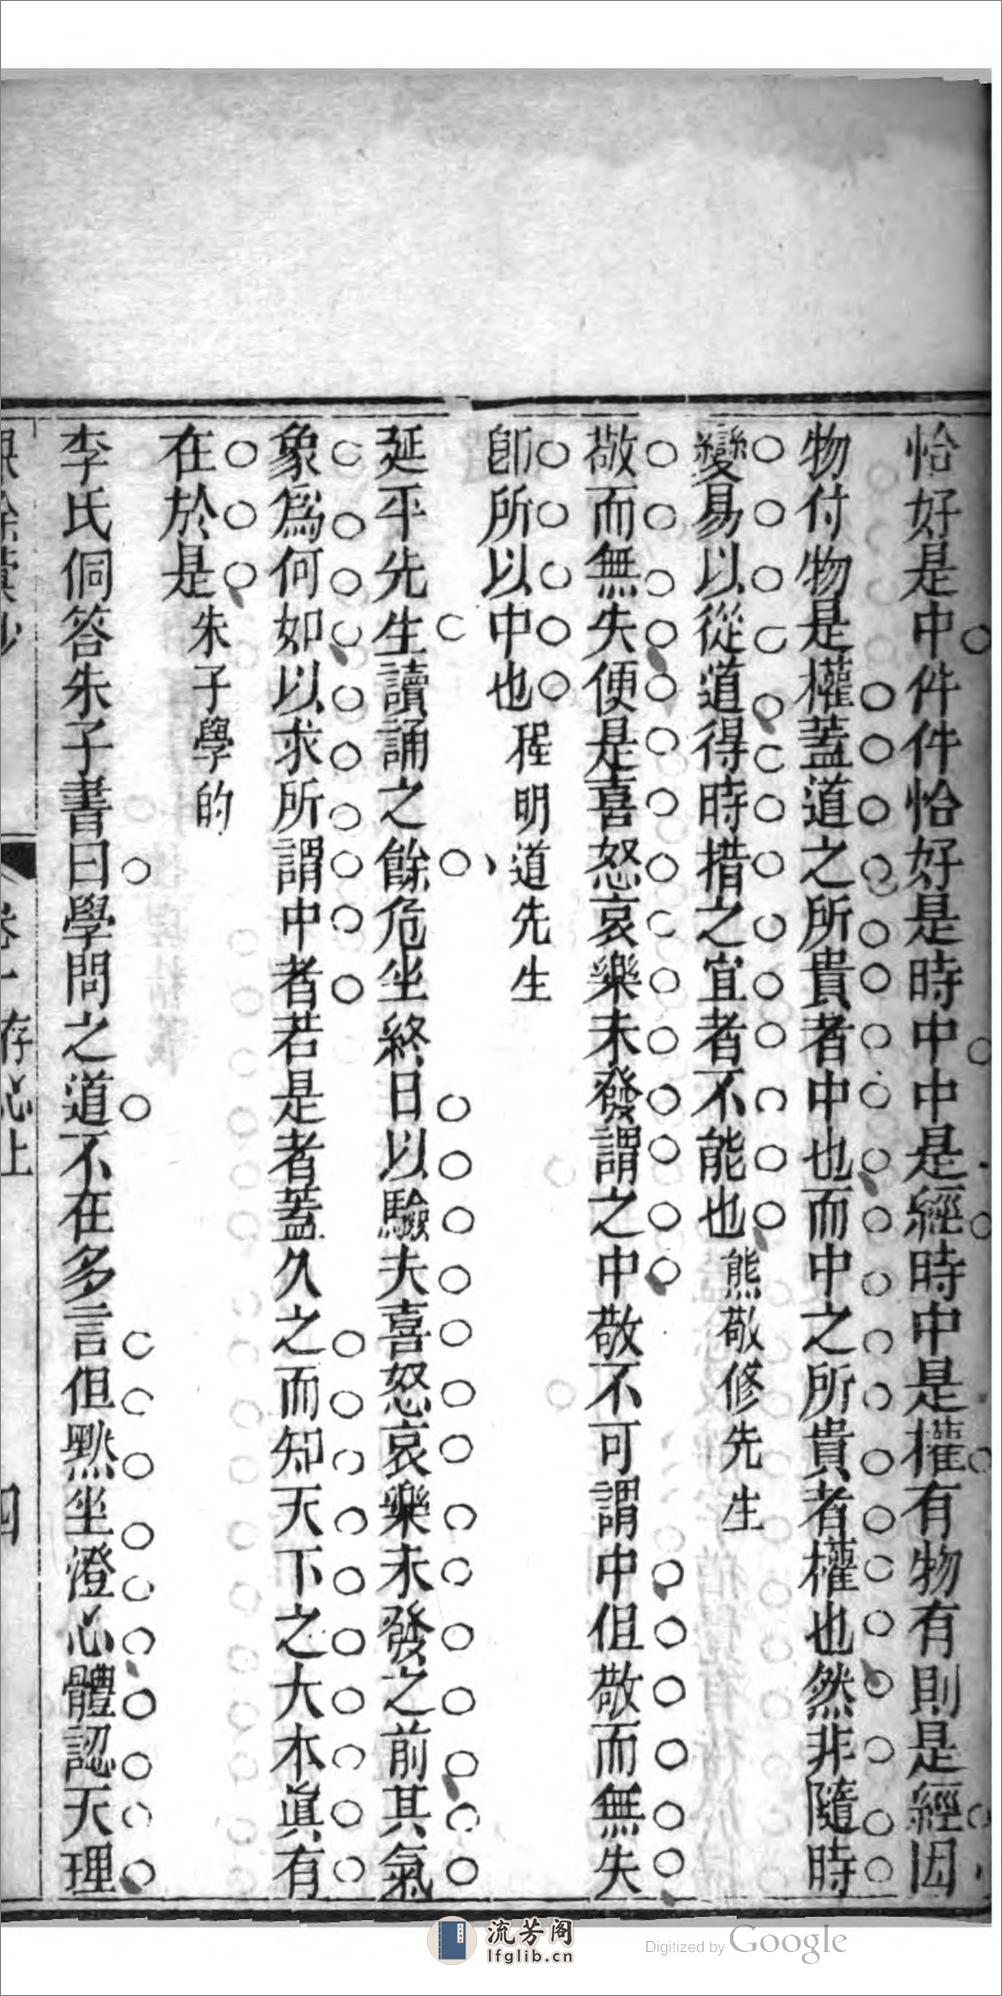 恰好是中件件恰好是時中中是經時中是權有物有則是經因
物付物是權蓋道之所貴者中也而中之所貴者權也然非隨時
變易以從道得時措之宜者不能也熊敬修先生
敬而無失便是喜怒哀樂未發謂之中敬不可謂中但敬而無失
卽所以中也程明道先生
延平先生讀誦之餘危坐終日以驗夫喜怒哀樂未發之前其氣
象爲何如以求所謂中者若是者蓋久之而知天下之大本眞有
在於是朱子學的
李氏侗答朱子書曰學問之道不在多言但黙坐澄心體認天理
卷一存心上
四
流芳阁
lfglib.cn
Digitized by Google